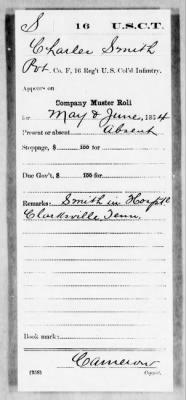 S 16 U.S.C.T.
Charles Smith
Pvt., Co. F, 16 Reg't U. S. Col'd Infantry.
Appears on
Company Muster Roll
for May & June, 1864
Present or absent Absent
Stoppage, $ 100 for
Due Gov't, $ 100 for
Remarks: Smith in Hosptl
Clarksville, Tenn.
Book mark:
Cameron
(358) Copyist.